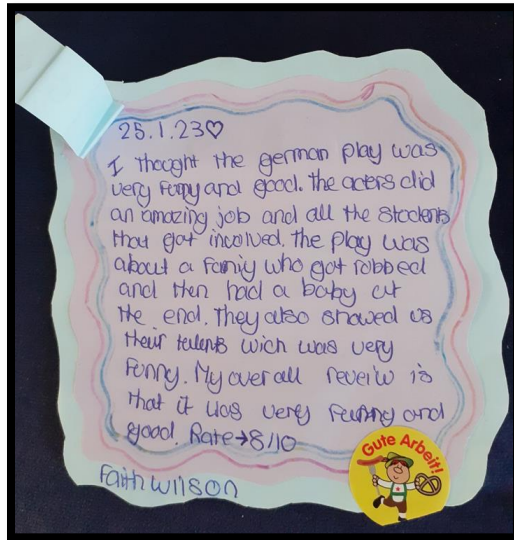 25.1.23♡
I thought the german play was
very funny and good. The acters did
an amazing job and all the students
that got involved. The play was
about a famiy who got robbed
and then had a baby at
the end. They also showed us
their talents wich was very
funny. My over all reveiw is
that it was very funny and
good. Rate→8/10
Faith Wilson
Gute Arbeit!